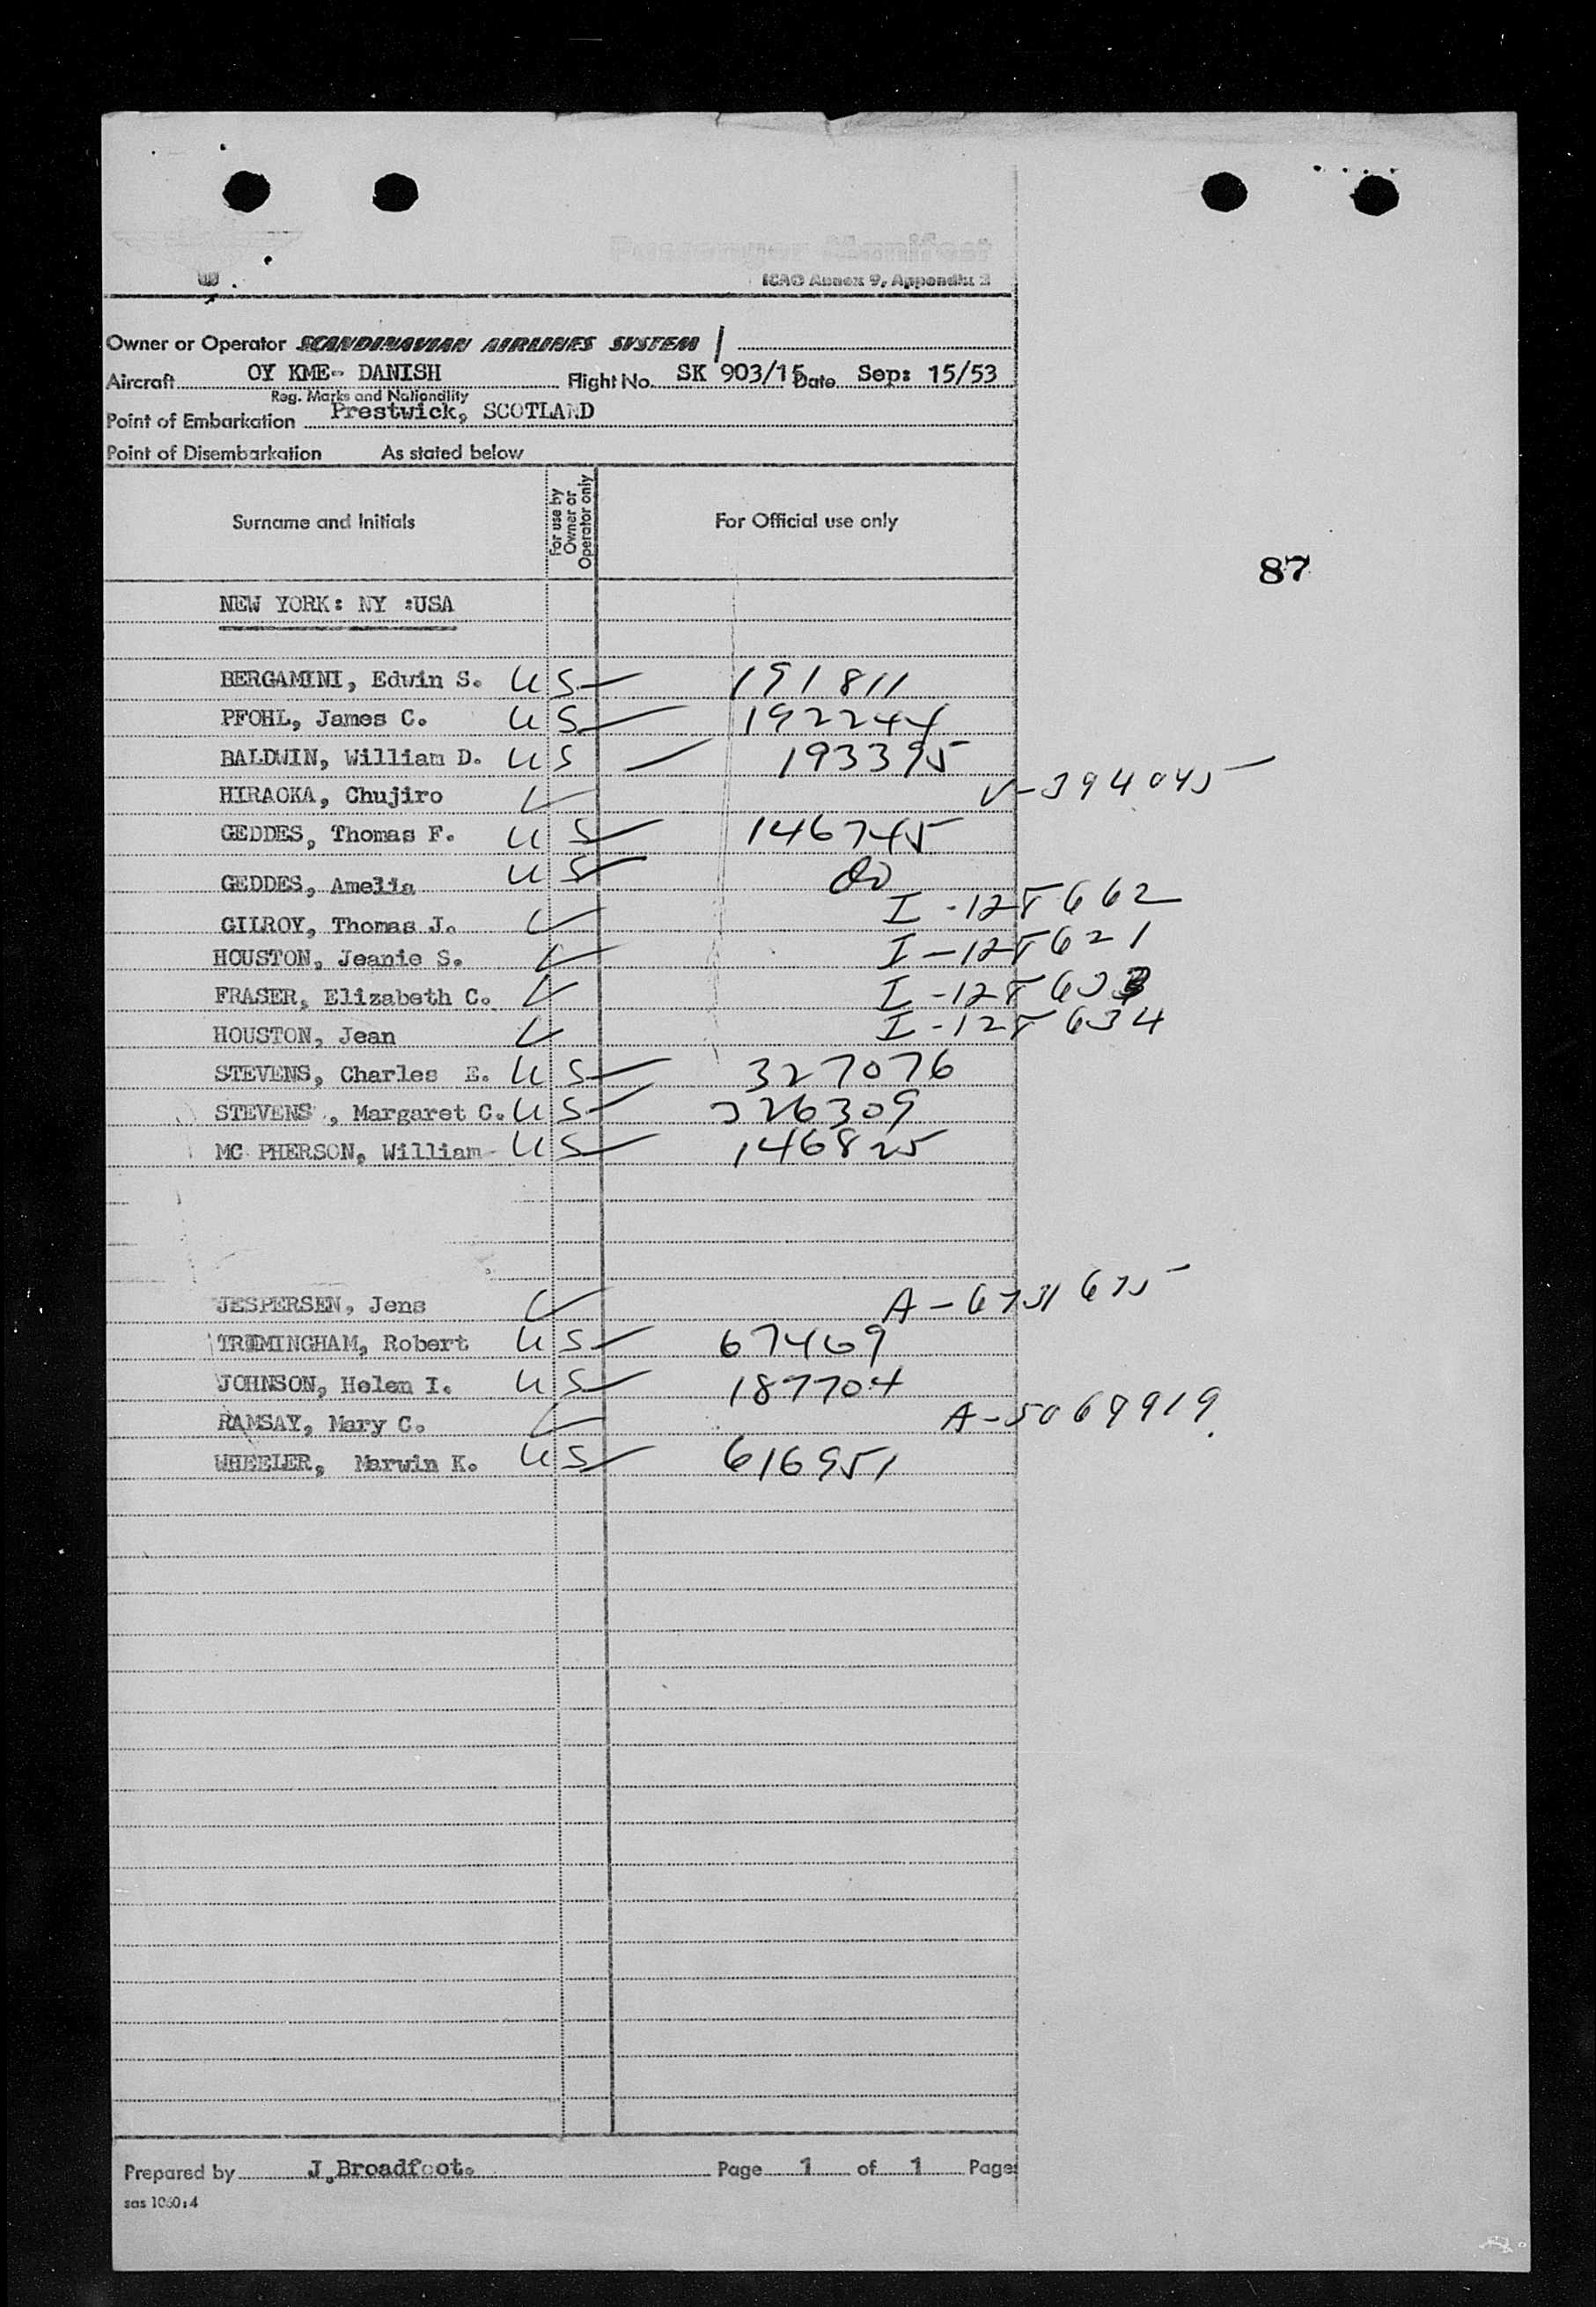 Passenger Manifest
ICAO Annex 9, Appendix 3
Owner or Operator SCANDINAVIAN AIRLINES SYSTEM /
Aircraft OY KME- DANISH Flight No. SK 903/15 Date Sep: 15/53
Reg. Marks and Nationality
Point of Embarkation Prestwick, SCOTLAND
Point of Disembarkation As stated below
Surname and Initials For use by Owner or Operator only For Official use only
87
NEW YORK: NY :USA
BERGAMINI, Edwin S. US 191811
PFOHL, James C. US 192244
BALDWIN, William D. US 193395
HIRAOKA, Chujiro V-394045
GEDDES, Thomas F. US 146745
GEDDES, Amelia US do
GILROY, Thomas J. I-128662
HOUSTON, Jeanie S. I-128621
FRASER, Elizabeth C. I-128633
HOUSTON, Jean I-128634
STEVENS, Charles E. US 327076
STEVENS , Margaret C. US 326309
MC PHERSON, William US 146825
JESPERSEN, Jens A-6731675
TRIMINGHAM, Robert US 67469
JOHNSON, Helen I. US 187704
RAMSAY, Mary C. A-5069919
WHEELER, Marwin K. US 616951
Prepared by J.Broadfoot. Page 1 of 1 Pages
sas 1060:4